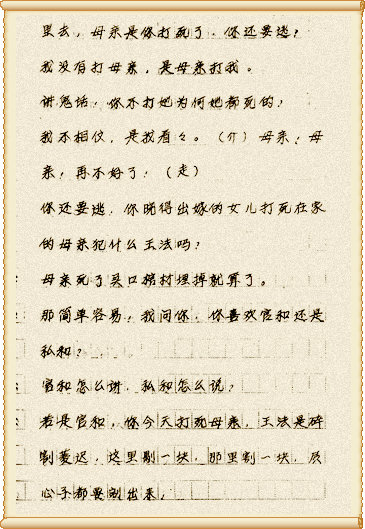 里去，母亲是你打死了，你还要逃？
我没有打母亲，是母亲打我。
讲鬼话，你不打她为何她都死的？
我不相仪，是我看看々。（介）母亲，母
亲，再不好了！（走）
你还要逃，你晓得出嫁的女儿打死在家
的母亲犯什么王法吗？
母亲死了买口棺材埋掉就算了。
那简单容易，我问你，你喜欢官和还是
私和？
官和怎么讲，私和怎么说？
若是官和，你今天打死母亲，王法是碎
剐菱迟，这里剐一块，那里割一块，反
心子都要剐出来！